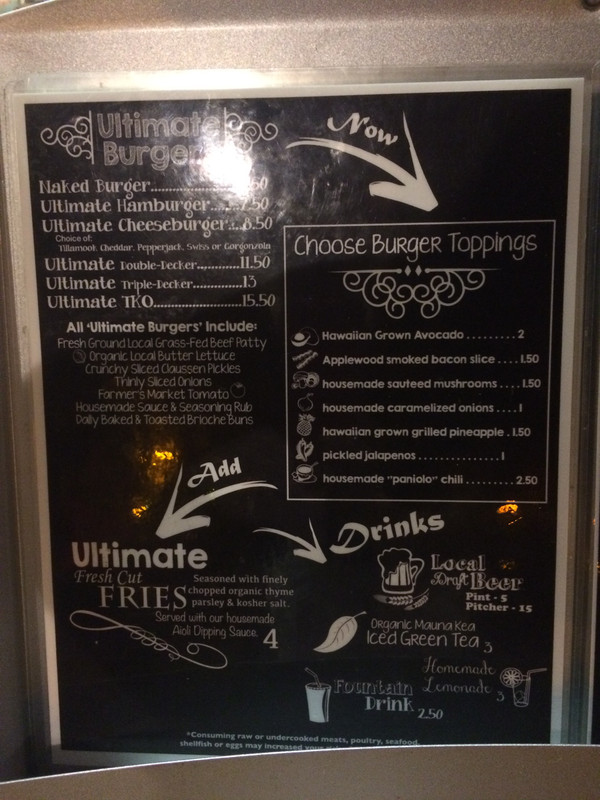 Ultimate
Burger
Now
Naked Burger
Ultimate Hamburger....7.50
Ultimate Cheeseburger....8.50
Choice of:
Tillamook Cheddar, Pepperjack, Swiss or Gorgonzola
Ultimate Double-Decker...........11.50
Ultimate Triple-Decker.............13
Ultimate TKO......................15.50
All 'Ultimate Burgers' Include:
Fresh Ground Local Grass-Fed Beef Patty
Organic Local Butter Lettuce
Crunchy Sliced Claussen Pickles
Thinly Sliced Onions
Farmer's Market Tomato
Housemade Sauce & Seasoning Rub
Daily Baked & Toasted Brioche Buns
Choose Burger Toppings
Hawaiian Grown Avocado ......... 2
Applewood smoked bacon slice .... 1.50
housemade sauteed mushrooms .... 1.50
housemade caramelized onions .... 1
hawaiian grown grilled pineapple . 1.50
pickled jalapenos ............... 1
housemade "paniolo" chili ......... 2.50
Add
Ultimate
Fresh Cut
FRIES
Seasoned with finely
chopped organic thyme
parsley & kosher salt.
Served with our housemade
Aioli Dipping Sauce. 4
Drinks
Local
Draft Beer
Pint - 5
Pitcher - 15
Organic Mauna Kea
Iced Green Tea 3
Homemade
Lemonade 3
Fountain
Drink 2.50
*Consuming raw or undercooked meats, poultry, seafood,
shellfish or eggs may increased your